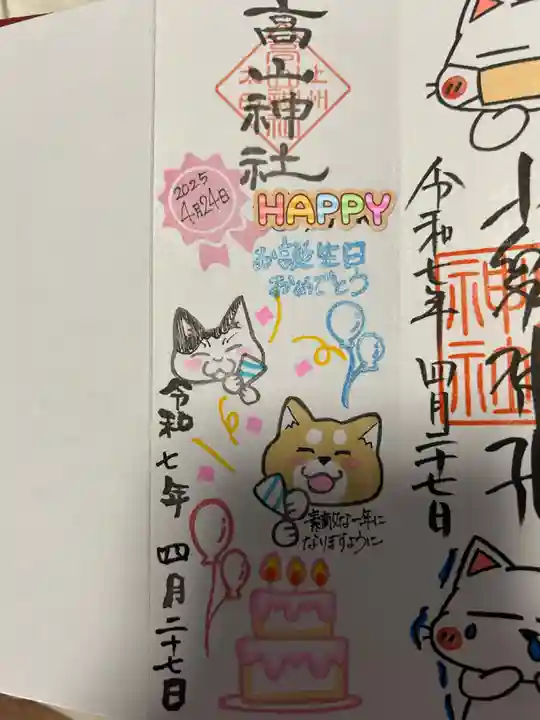 高山神社
上州
太田
2025
4月24日
HAPPY
お誕生日
おめでとう
令和七年 四月二十七日
素敵な一年に
なりますように
令和七年 四月二十七日
神社